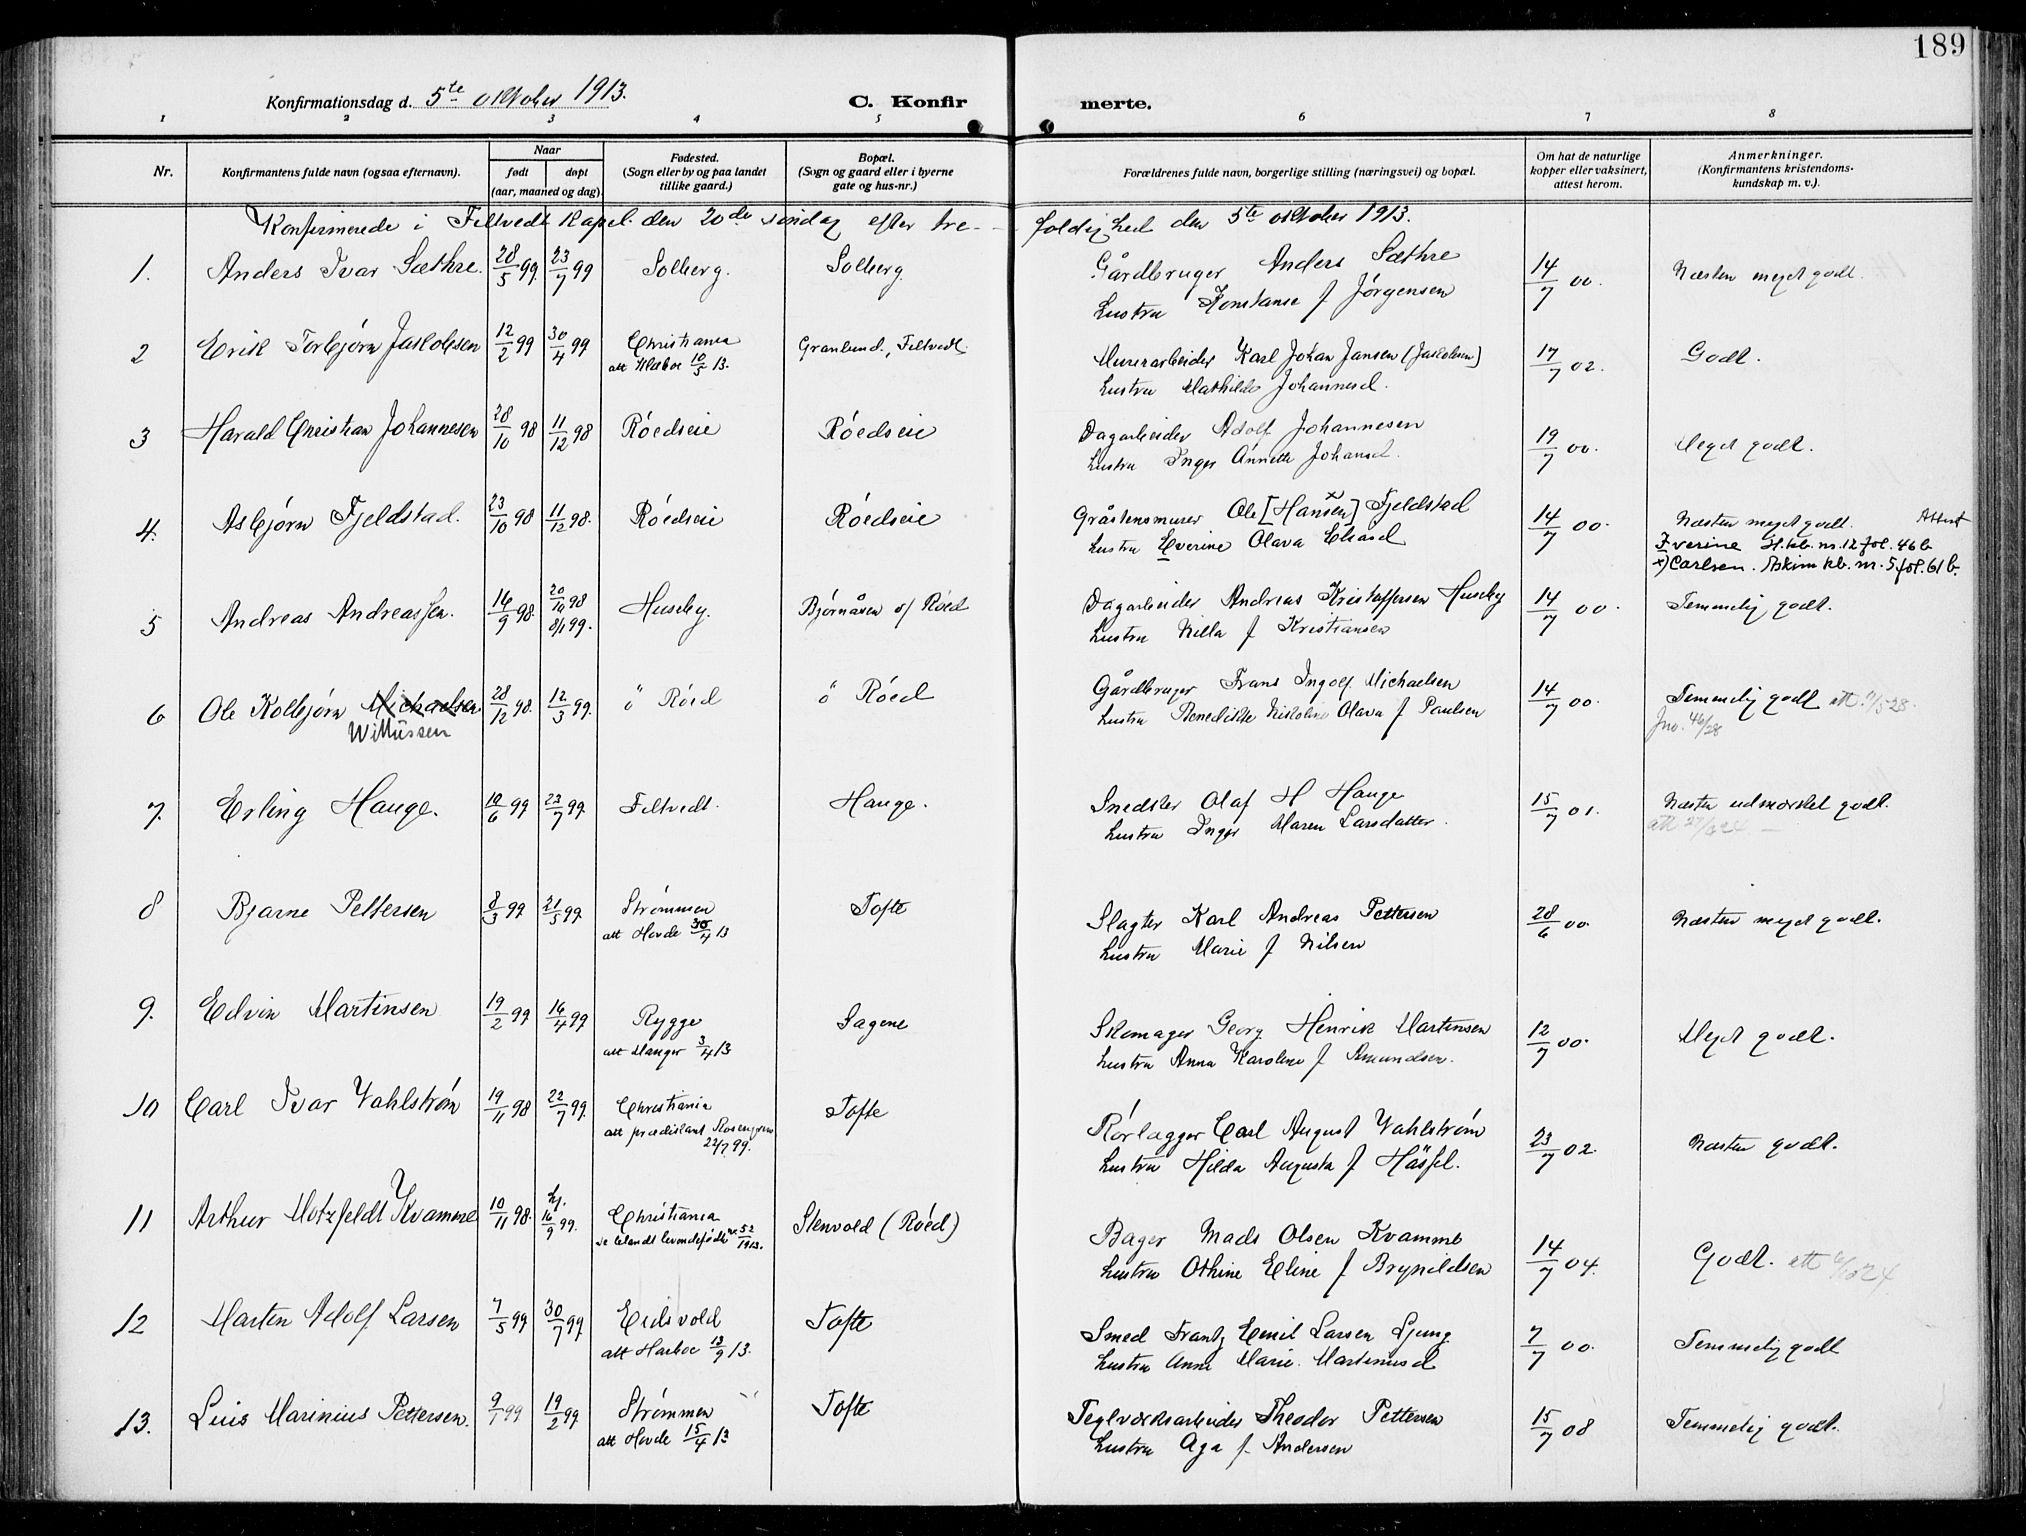 189
Konfirmationsdag d. 5te oktober 1913. C. Konfir merte.
1 2 3 4 5 6 7 8
Nr. Konfirmantens fulde navn (ogsaa efternavn). Naar født døpt (aar, maaned og dag). Fødested. (Sogn eller by og paa landet tillike gaard.) Bopæl. (Sogn og gaard eller i byerne gate og hus-nr.) Forældrenes fulde navn, borgerlige stilling (næringsvei) og bopæl. Om hat de naturlige kopper eller vaksinert, attest herom. Anmerkninger. (Konfirmantens kristendoms-kundskap m. v.).
Konfirmerede i Filtvedt kapel den 20de søndag efter tre- foldighed den 5te oktober 1913.
1. Anders Ivar Sæthre. 28/5 99. 23/7 99 Solberg. Solberg. Gårdbruger Anders Sæthre 14/7 00. Næsten meget godt.
Hustru Konstanse f Jørgensen
2 Erik Torbjørn Jaskobsen 12/2 99 30/4 99 Christiania Granlund, Filtvedt. Murerarbeider Karl Johan Jansen (Jakobsen) 17/7 02. Godt.
att 10/5 13. Hustru Mathilde Johannesd.
3 Harald Christian Johannesen 28/10 98 11/12 98 Røedseie Røedseie Dagarbeider Adolf Johannesen 19/7 00. Meget godt.
Hustru Inger Annette Johansd.
4. Asbjørn Fjeldstad. 23/10 98 11/12 98. Røedseie Røedseie Gråstensmurer Ole [Hansen]x Fjeldstad 14/7 00. Næsten meget godt. Attest
Hustru Everine Olava Eliasd Iverine H. kb. nr. 12 fol. 46 b
x) Carlsen. Askim kb. nr. 5 fol. 61 b.
5 Andreas Andreassen. 16/9 98. 20/10 98 8/1 99. Huseby. Bjørnåsen af Røed Dagarbeider Andreas Kristoffersen Huseby 14/7 00. Temmelig godt.
Hustru Nilla f Kristiansen
6 Ole Kolbjørn Michaelsen 28/12 98. 12/3 99. ö Røed ö Røed Gårdbruger Frans Ingolf Michaelsen 14/7 00. Temmelig godt att. 1/5 28.
Willussen Hustru Benedikte Nikoline Olava f Paulsen Jno. 46/28
7. Erling Hauge. 10/6 99 23/7 99. Filtvedt. Hauge. Snedker Olaf H Hauge 15/7 01. Næsten udmærket godt.
Hustru Inger Maren Larsdatter. att
8 Bjarne Pettersen 8/3 99 21/5 99 Strømmen Tofte Slagter Karl Andreas Pettersen 28/6 00. Næsten meget godt.
att Hovde 30/4 13 Hustru Marie f Nilsen
9. Edvin Martinsen 19/2 99 16/4 99 Rygge Sagene Skomager Georg Henrik Martinsen 12/7 00. Meget godt.
att Manger 3/4 13 Hustru Anna Karoline f Amundsen.
10 Carl Ivar Vahlstrøm 19/11 98 22/7 99. Christiania Tofte Rørlægger Carl August Vahlstrøm 23/7 02. Næsten godt.
att præd 22/7 99. Hustru Hilda Augusta f
11 Arthur Motzfeldt Kvamme 10/11 98. hj. 16/9 99. Christiania Stenvold (Røed) Bager Mads Olsen Kvamme 14/7 04. Godt. att
levendefødte nr. 52/1913. Hustru Othine Eline f Brynildsen
12 Marten Adolf Larsen 7/5 99 30/7 99 Eidsvold Tofte Smed Frantz Emil Larsen Ljung 7/7 00. Temmelig godt
att Harboe 13/9 13. Hustru Anne Marie. Martinusd
13. Luis Marinius Pettersen. 9/1 99 19/2 99 Strømmen Tofte Teglværksarbeider Theodor Pettersen 15/7 08 Temmelig godt.
att Hovde 15/4 13 Hustru Aga f. Andersen